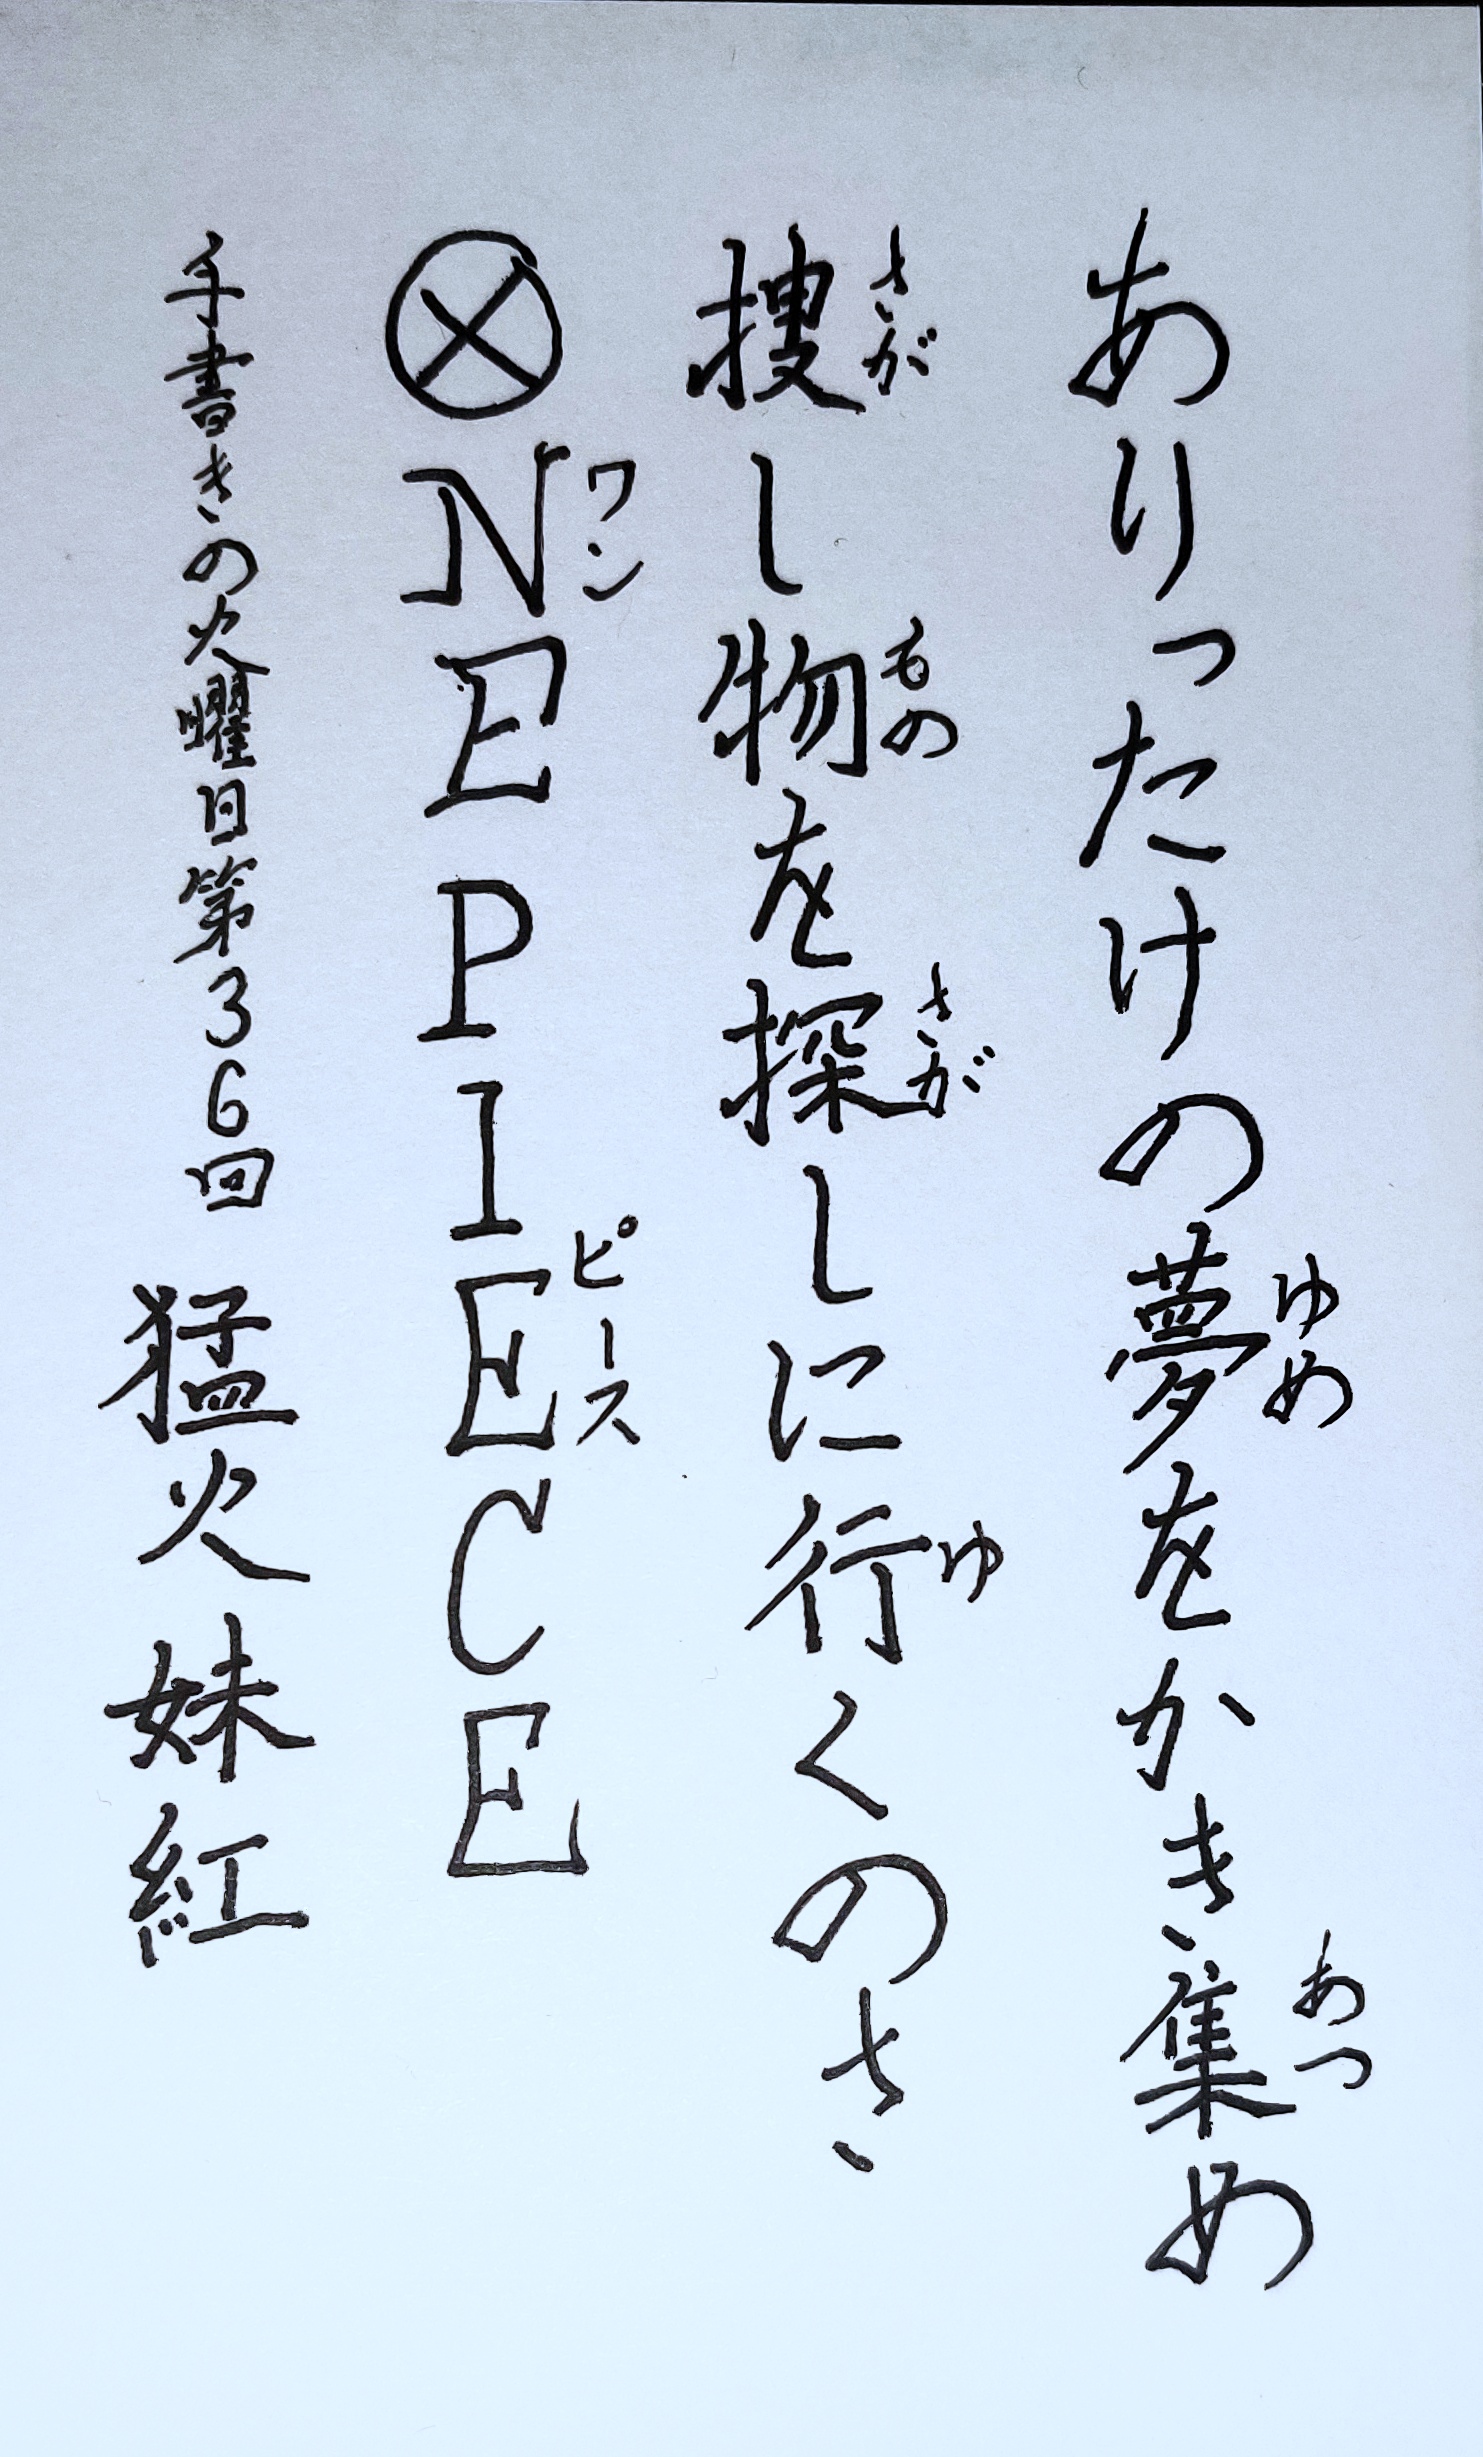 ありったけの夢をかき集め
ゆめ
あつ
捜し物を探しに行くのさ
さが
もの
さが
ゆ
ⓧNEPIECE
ワン
ピース
手書きの火曜日第36回 猛火妹紅